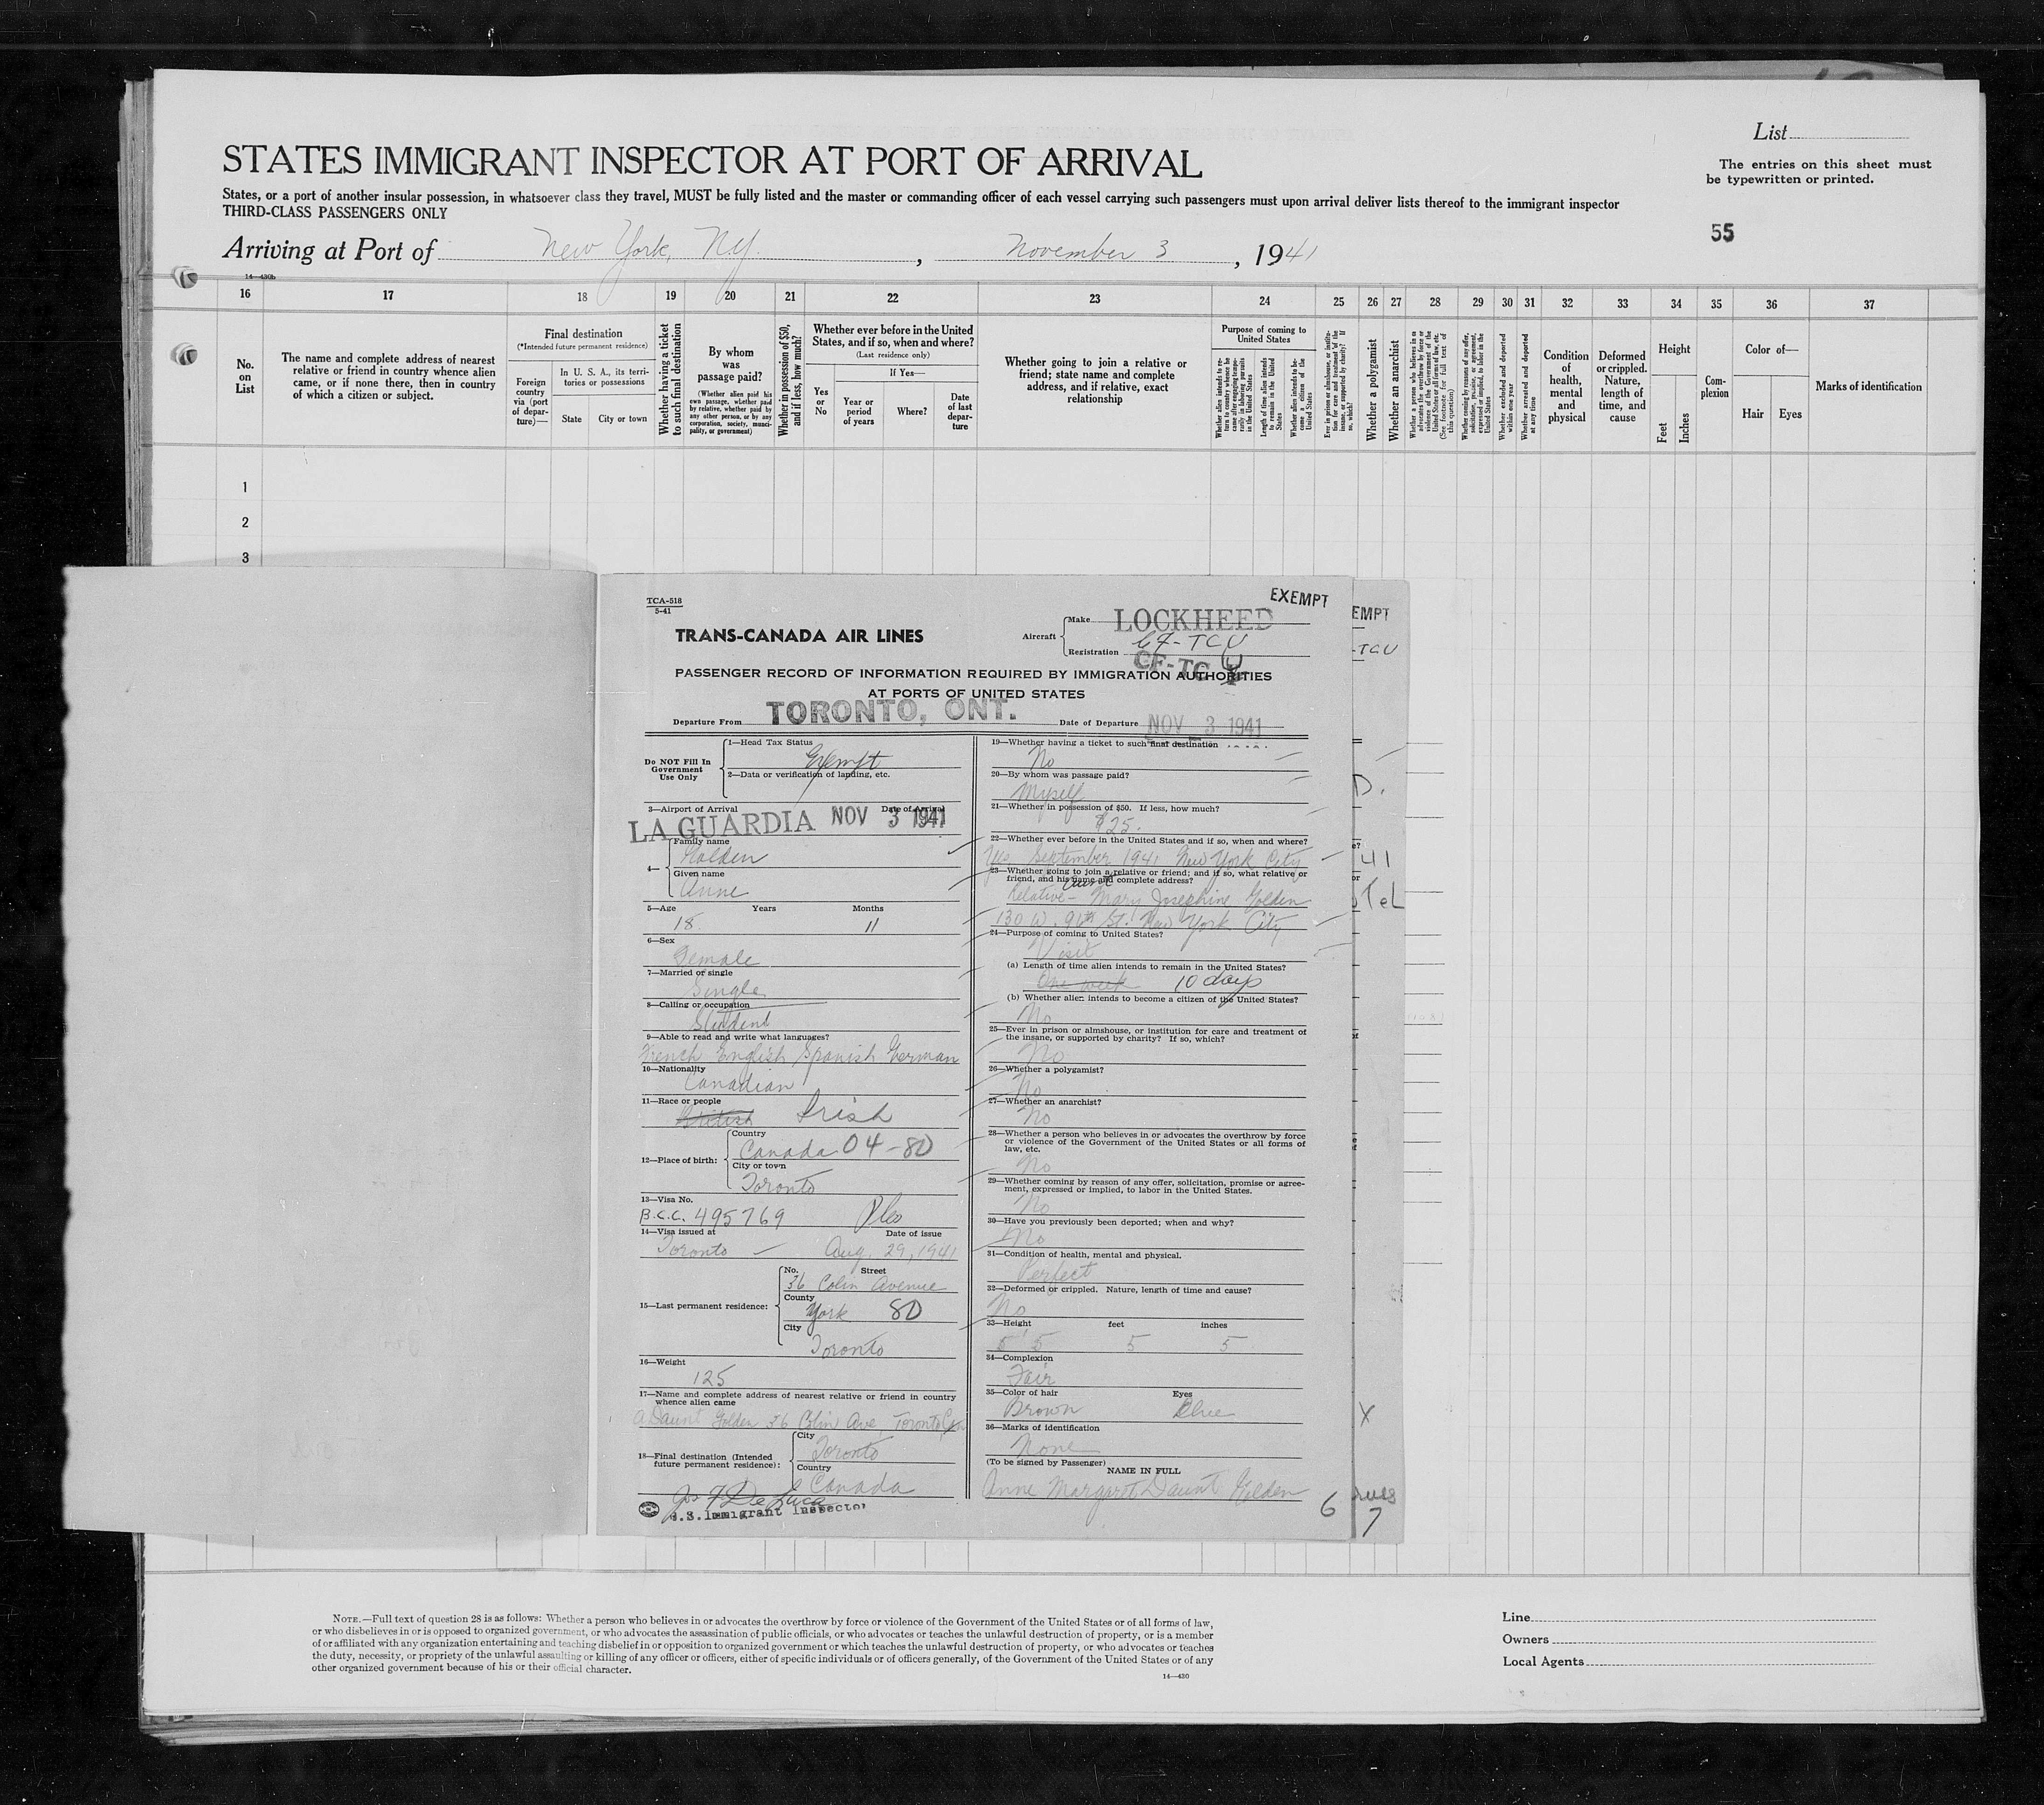 List
STATES IMMIGRANT INSPECTOR AT PORT OF ARRIVAL
The entries on this sheet must
be typewritten or printed.
States, or a port of another insular possession, in whatsoever class they travel, MUST be fully listed and the master or commanding officer of each vessel carrying such passengers must upon arrival deliver lists thereof to the immigrant inspector
THIRD-CLASS PASSENGERS ONLY
55
Arriving at Port of New York, N.Y., November 3, 1941
14—430b
16 17 18 19 20 21 22 23 24 25 26 27 28 29 30 31 32 33 34 35 36 37
No. on List
The name and complete address of nearest relative or friend in country whence alien came, or if none there, then in country of which a citizen or subject.
Final destination
(*Intended future permanent residence)
Foreign country via (port of departure)—
In U. S. A., its territories or possessions
State
City or town
Whether having a ticket to such final destination
By whom was passage paid?
(Whether alien paid his own passage, whether paid by relative, whether paid by any other person, or by any corporation, society, municipality, or government)
Whether in possession of $50, and if less, how much?
Whether ever before in the United States, and if so, when and where?
(Last residence only)
Yes or No
If Yes—
Year or period of years
Where?
Date of last departure
Whether going to join a relative or friend; state name and complete address, and if relative, exact relationship
Purpose of coming to United States
Whether alien intends to return to country whence he came after engaging temporarily in laboring pursuits in the United States
Length of time alien intends to remain in the United States
Whether alien intends to become a citizen of the United States
Ever in prison or almshouse, or institution for care and treatment of the insane, or supported by charity? If so, which?
Whether a polygamist
Whether an anarchist
Whether a person who believes in or advocates the overthrow by force or violence of the Government of the United States or all forms of law, etc. (See footnote for full text of this question)
Whether coming by reason of any offer, solicitation, promise, or agreement, expressed or implied, to labor in the United States
Whether excluded and deported within one year
Whether arrested and deported at any time
Condition of health, mental and physical
Deformed or crippled. Nature, length of time, and cause
Height
Feet
Inches
Complexion
Color of—
Hair
Eyes
Marks of identification
1
2
3
TCA-518
5-41
EXEMPT
TRANS-CANADA AIR LINES
Aircraft
Make LOCKHEED
Registration CF-TCU
CF-TC U
PASSENGER RECORD OF INFORMATION REQUIRED BY IMMIGRATION AUTHORITIES
AT PORTS OF UNITED STATES
Departure From TORONTO, ONT. Date of Departure NOV 3 1941
Do NOT Fill In
Government
Use Only
1—Head Tax Status
Exempt
2—Data or verification of landing, etc.
3—Airport of Arrival Date of Arrival
LA GUARDIA NOV 3 1941
4—
Family name
Golden
Given name
Anne
5—Age Years Months
18 11
6—Sex
Female
7—Married or single
Single
8—Calling or occupation
Student
9—Able to read and write what languages?
French English Spanish German
10—Nationality
Canadian
11—Race or people
British Irish
12—Place of birth:
Country
Canada 04-80
City or town
Toronto
13—Visa No.
B.C.C. 495769
14—Visa issued at Date of issue
Toronto — Aug. 29, 1941
15—Last permanent residence:
No. Street
36 Colin Avenue
County
York 80
City
Toronto
16—Weight
125
17—Name and complete address of nearest relative or friend in country
whence alien came
A Daunt Golden 36 Colin Ave, Toronto, Can
18—Final destination (Intended
future permanent residence):
City
Toronto
Country
Canada
Jos F De Luca
U.S. Immigrant Inspector
19—Whether having a ticket to such final destination
No
20—By whom was passage paid?
Myself
21—Whether in possession of $50. If less, how much?
$25.
22—Whether ever before in the United States and if so, when and where?
Yes September 1941 New York City
23—Whether going to join a relative or friend; and if so, what relative or
friend, and his name and complete address?
Aunt
Relative - Mary Josephine Golden
130 W. 91st St. New York City
24—Purpose of coming to United States?
Visit
(a) Length of time alien intends to remain in the United States?
One week 10 days
(b) Whether alien intends to become a citizen of the United States?
No
25—Ever in prison or almshouse, or institution for care and treatment of
the insane, or supported by charity? If so, which?
No
26—Whether a polygamist?
No
27—Whether an anarchist?
No
28—Whether a person who believes in or advocates the overthrow by force
or violence of the Government of the United States or all forms of
law, etc.
No
29—Whether coming by reason of any offer, solicitation, promise or agree-
ment, expressed or implied, to labor in the United States.
No
30—Have you previously been deported; when and why?
No
31—Condition of health, mental and physical.
Perfect
32—Deformed or crippled. Nature, length of time and cause?
No
33—Height feet inches
5' 5 5 5
34—Complexion
Fair
35—Color of hair Eyes
Brown Blue
36—Marks of identification
None
(To be signed by Passenger)
NAME IN FULL
Anne Margaret Daunt Golden
6
EMPT
-TCU
D.
41
TeL
X
7
NOTE.—Full text of question 28 is as follows: Whether a person who believes in or advocates the overthrow by force or violence of the Government of the United States or of all forms of law,
or who disbelieves in or is opposed to organized government, or who advocates the assassination of public officials, or who advocates or teaches the unlawful destruction of property, or is a member
of or affiliated with any organization entertaining and teaching disbelief in or opposition to organized government or which teaches the unlawful destruction of property, or who advocates or teaches
the duty, necessity, or propriety of the unlawful assaulting or killing of any officer or officers, either of specific individuals or of officers generally, of the Government of the United States or of any
other organized government because of his or their official character.
14—430
Line
Owners
Local Agents